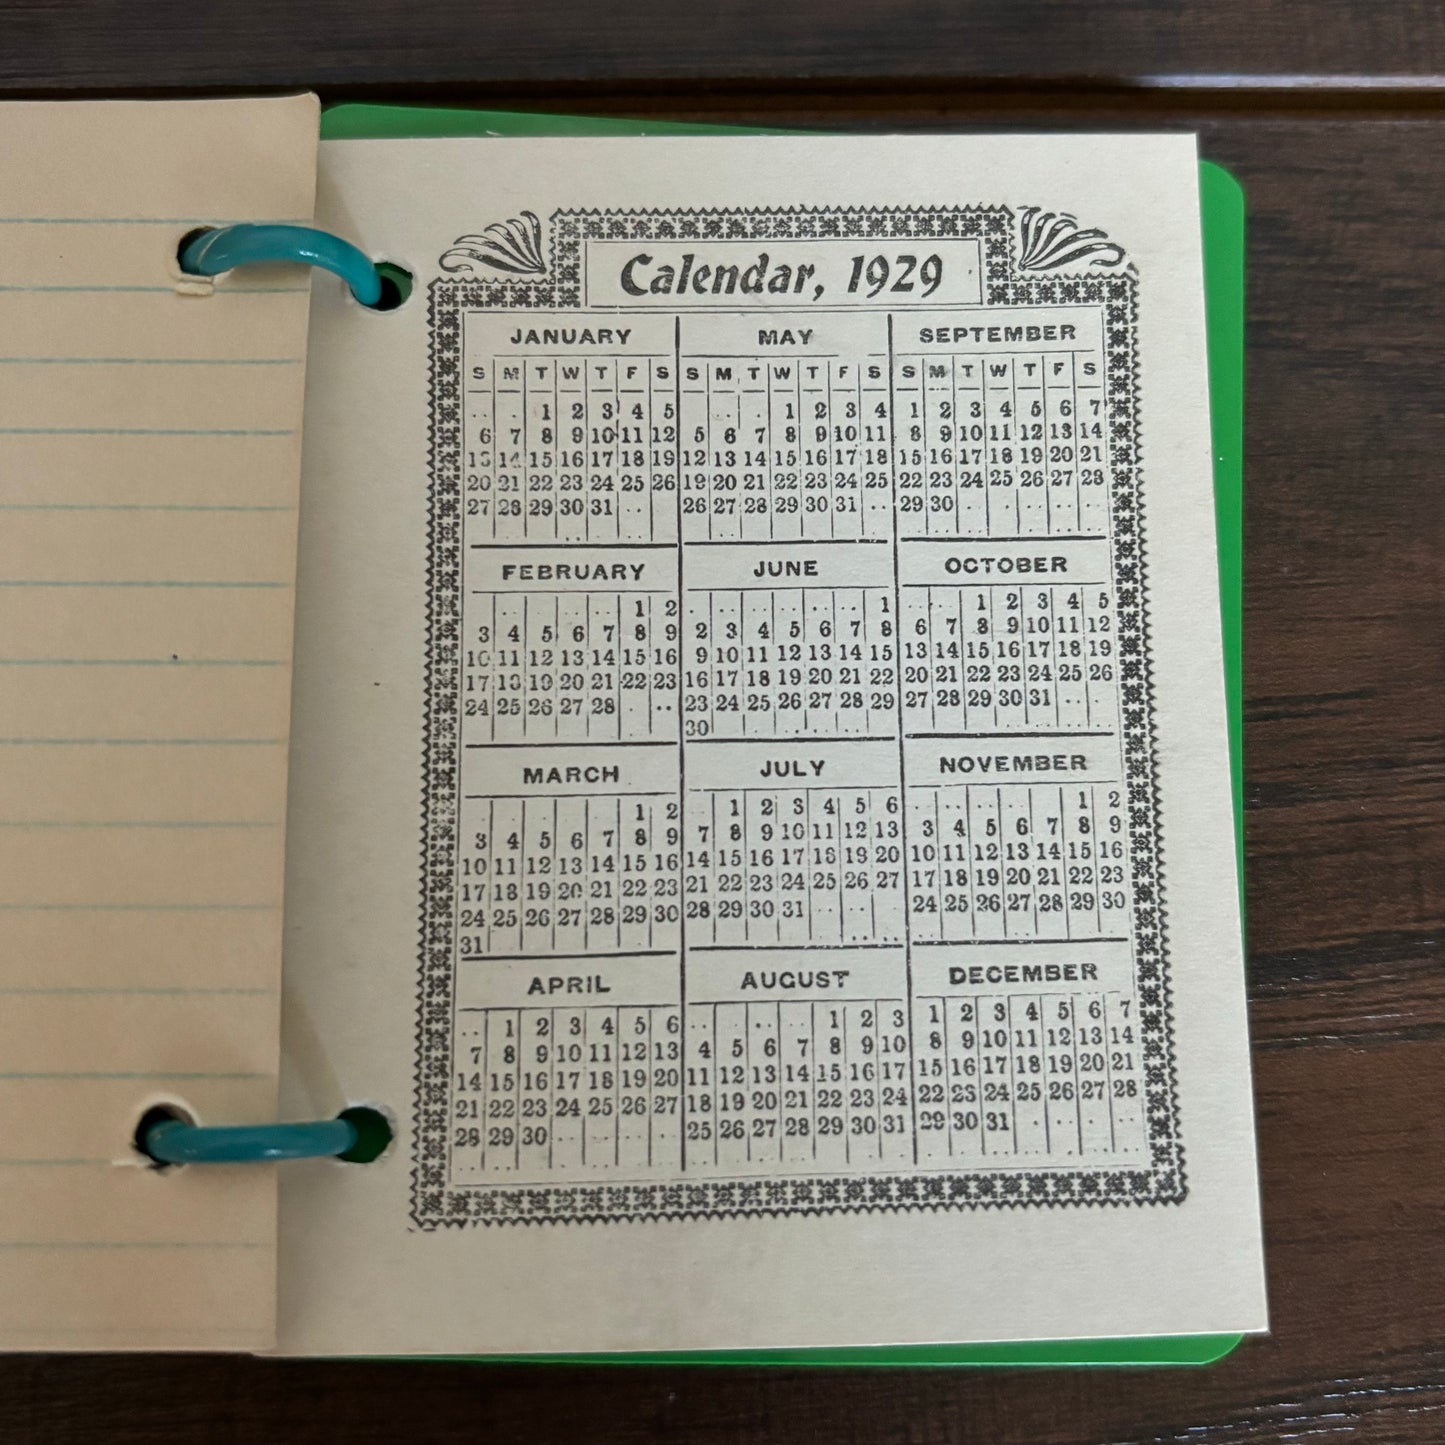 Calendar, 1929
JANUARY
S M T W T F S
1 2 3 4 5
6 7 8 9 10 11 12
13 14 15 16 17 18 19
20 21 22 23 24 25 26
27 28 29 30 31
FEBRUARY
1 2
3 4 5 6 7 8 9
10 11 12 13 14 15 16
17 18 19 20 21 22 23
24 25 26 27 28
MARCH
1 2
3 4 5 6 7 8 9
10 11 12 13 14 15 16
17 18 19 20 21 22 23
24 25 26 27 28 29 30
31
APRIL
1 2 3 4 5 6
7 8 9 10 11 12 13
14 15 16 17 18 19 20
21 22 23 24 25 26 27
28 29 30
MAY
S M T W T F S
1 2 3 4
5 6 7 8 9 10 11
12 13 14 15 16 17 18
19 20 21 22 23 24 25
26 27 28 29 30 31
JUNE
1
2 3 4 5 6 7 8
9 10 11 12 13 14 15
16 17 18 19 20 21 22
23 24 25 26 27 28 29
30
JULY
1 2 3 4 5 6
7 8 9 10 11 12 13
14 15 16 17 18 19 20
21 22 23 24 25 26 27
28 29 30 31
AUGUST
1 2 3
4 5 6 7 8 9 10
11 12 13 14 15 16 17
18 19 20 21 22 23 24
25 26 27 28 29 30 31
SEPTEMBER
S M T W T F S
1 2 3 4 5 6 7
8 9 10 11 12 13 14
15 16 17 18 19 20 21
22 23 24 25 26 27 28
29 30
OCTOBER
1 2 3 4 5
6 7 8 9 10 11 12
13 14 15 16 17 18 19
20 21 22 23 24 25 26
27 28 29 30 31
NOVEMBER
1 2
3 4 5 6 7 8 9
10 11 12 13 14 15 16
17 18 19 20 21 22 23
24 25 26 27 28 29 30
DECEMBER
1 2 3 4 5 6 7
8 9 10 11 12 13 14
15 16 17 18 19 20 21
22 23 24 25 26 27 28
29 30 31